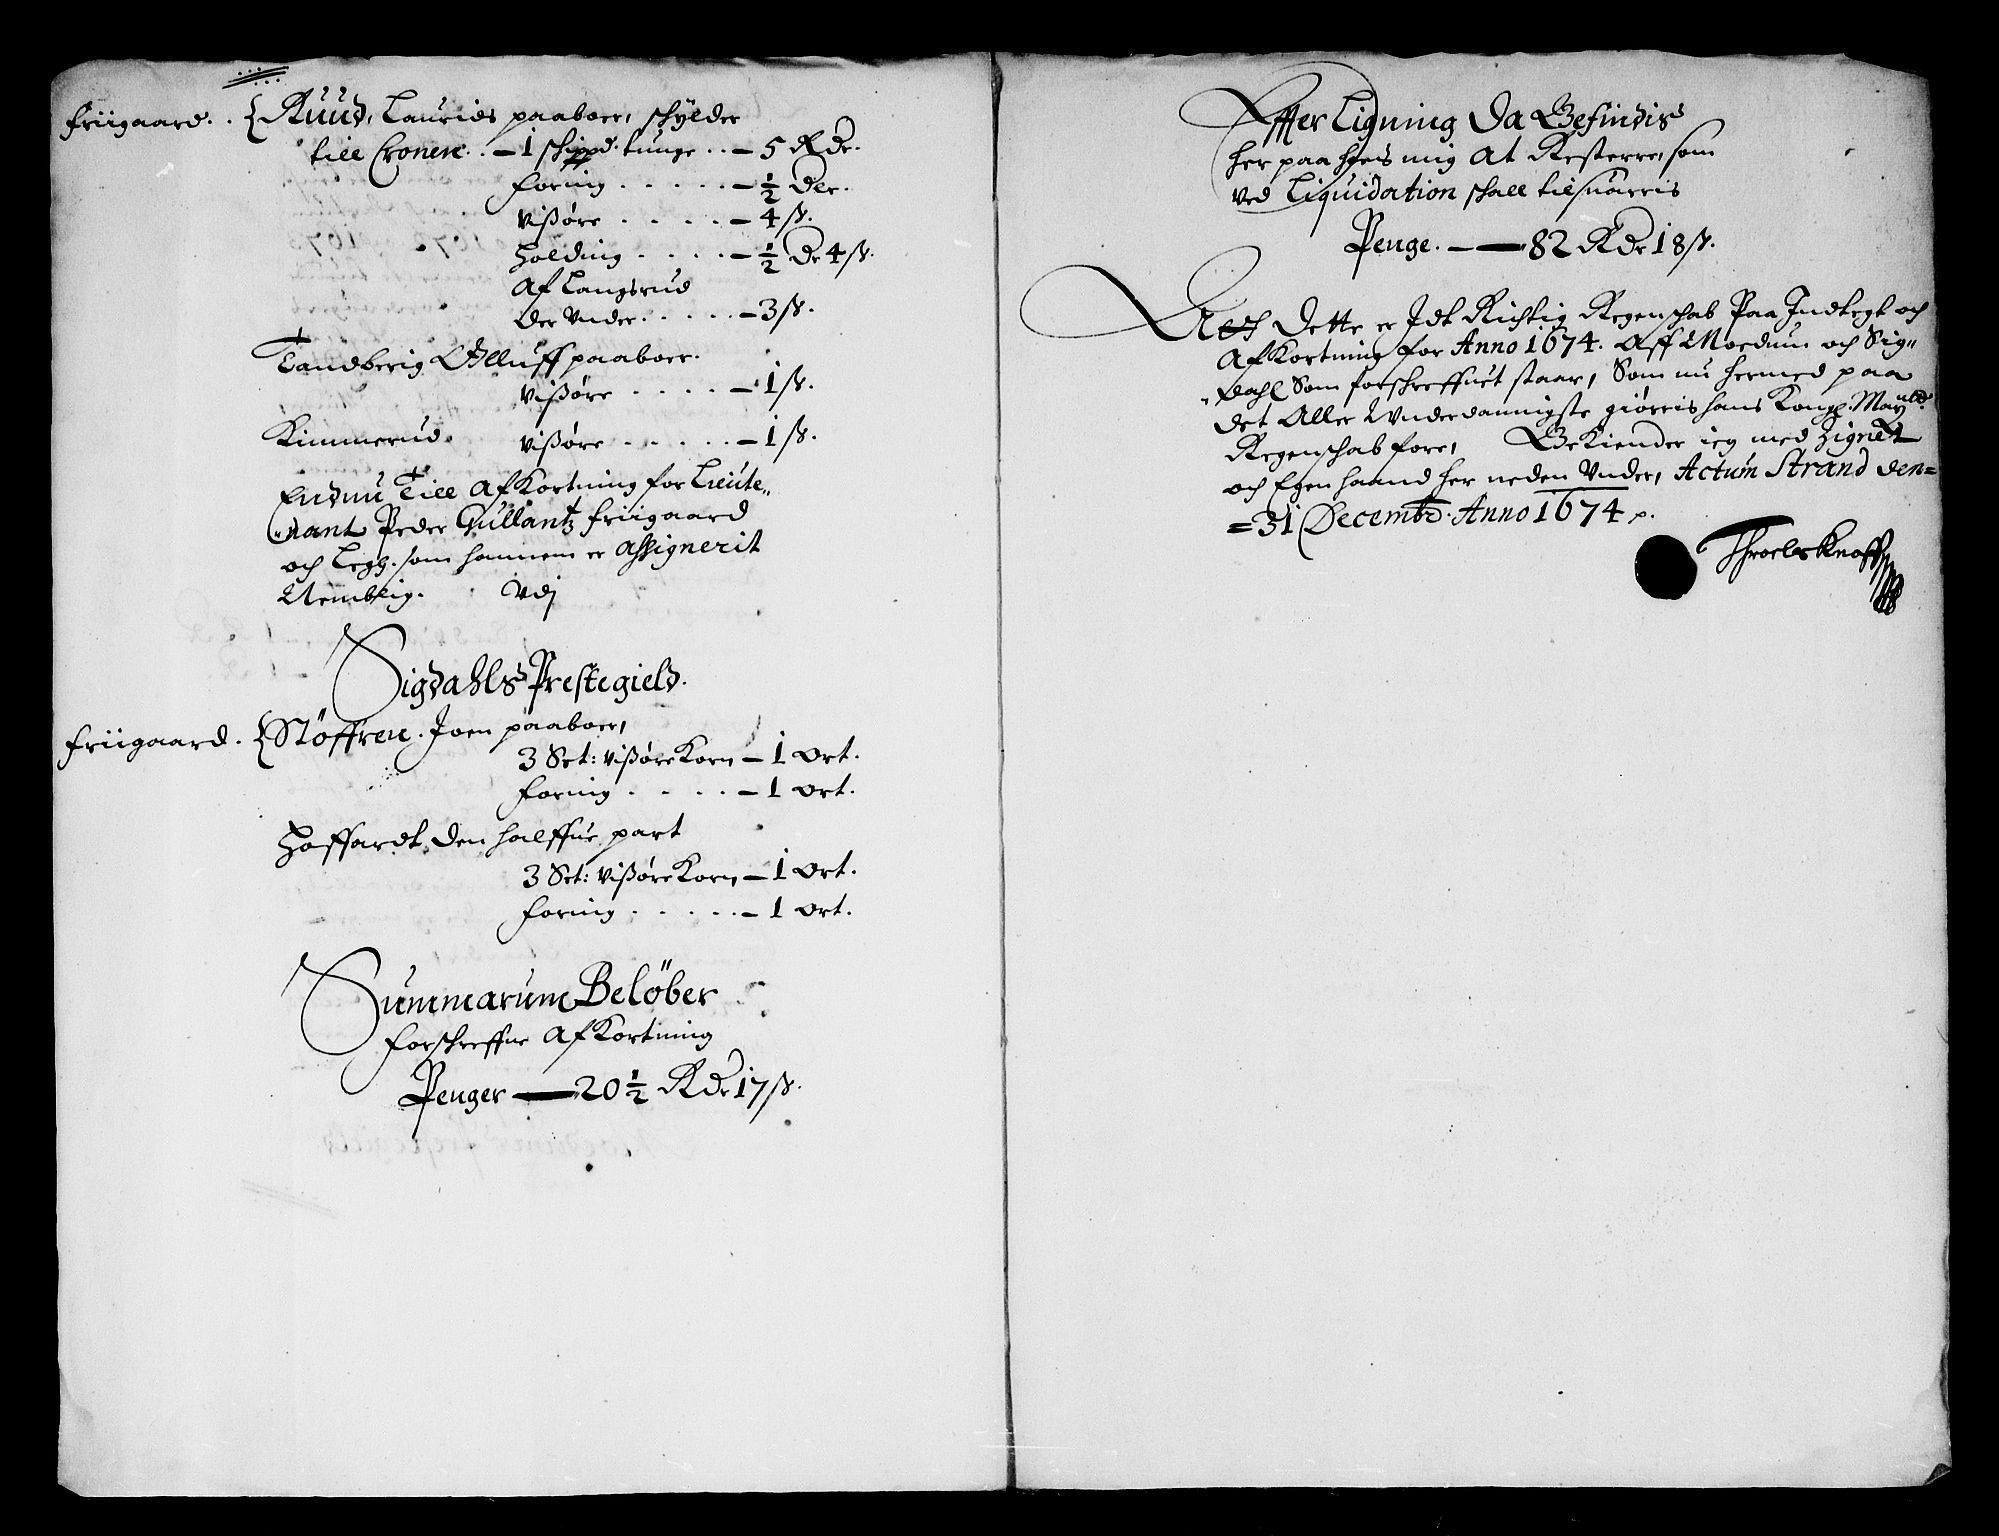 friigaard. . { Ruud, Laurids paaboer, schylder
till Cronen . . – 1 schippd. tunge . . – 5 Rdr.
foring . . . . . – ½ dlr.
vißøre . . . . . – 4 ß.
holding . . . . – ½ dr 4 ß.
Af Langsrud
der under . . . . . – 3 ß.
Tandberig Olluff paaboer.
vißøre . . . . – 1 ß.
Kimmerud. vißøre . . . . . – 1 ß.
Endnu Till Afkortning for Lieute„
„nant Peder Gullantz friigaard
och Legg. som hannem er assignerit
Nemblig. vdj
Sigdahls Prestegield.
friigaard. { Nöffren. Joen paaboer,
3 Set: vißøre Korn – 1 ort.
foring . . . . – 1 ort.
Hoffardt den halffue part
3 Set: vißøre Korn – 1 ort.
foring . . . . . – 1 ort.
Summarum Belöber
forschreffne Afkortning
Penger — 20 ½ Rdr 17 ß.
Effter Ligning Da Befindis
her paa hos mig At Resterre, som
ved Liquidation schall tilsuarris
Penge. — 82 Rdr 18 ß.
At dette er Idt Richtig Regenschab Paa Indtegt och
Afkortning for Anno 1674. Aff Moedum och Sig„
„dahl Som forschreffuet staar, Som nu hermed paa
det Aller Underdannigste giørris hans Kongl. Mayts
Regenschab fore, Bekiender ieg med Zignet
och Egen haand her neden under, Actum Strand den=
=31 Decembr. Anno 1674 p.
Throels Knoff